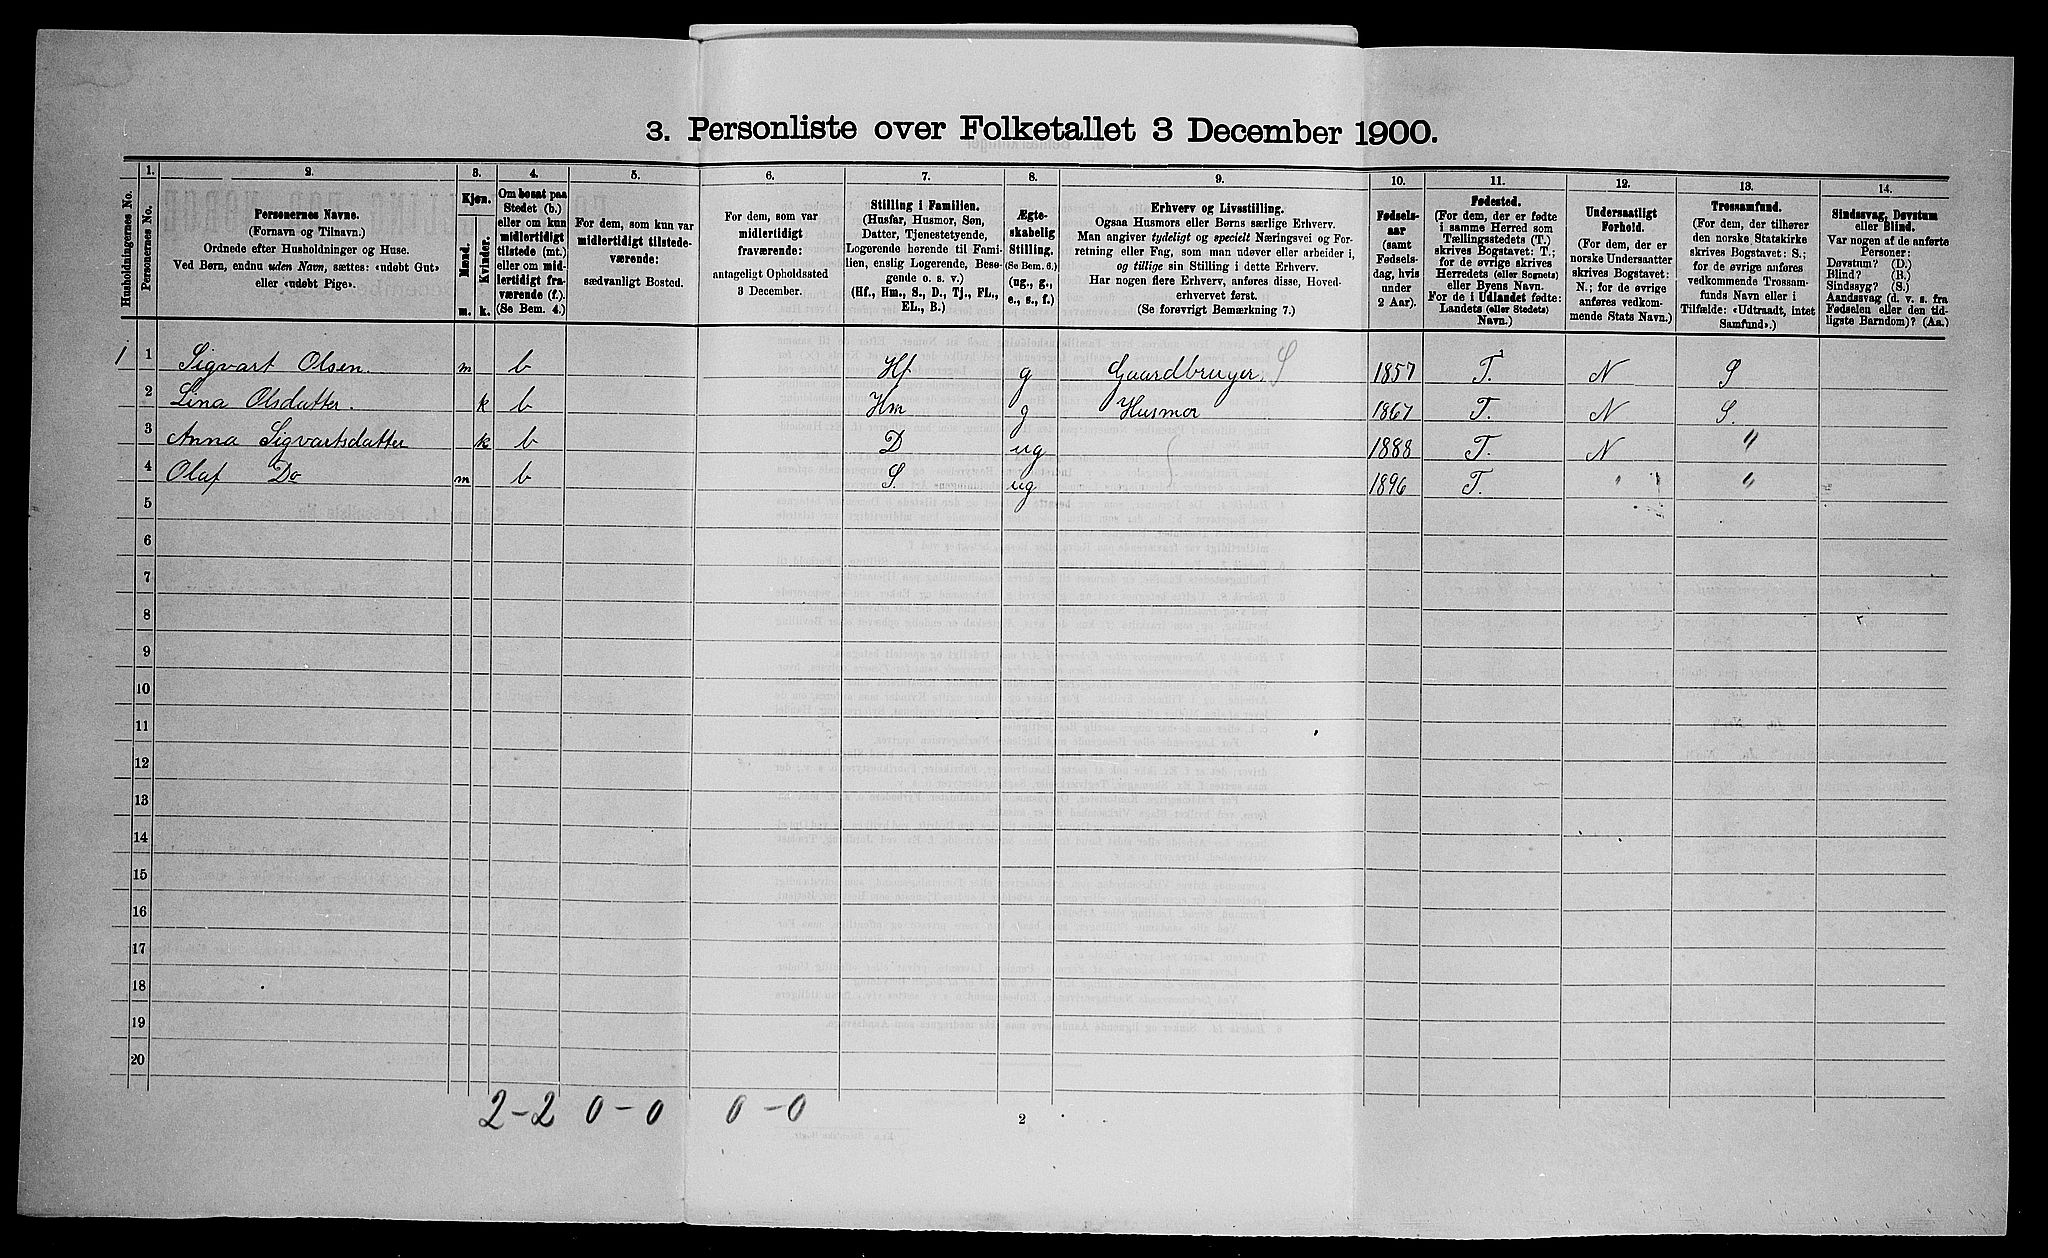 3. Personliste over Folketallet 3 December 1900.
Husholdningernes No.
1.
Personernes No.
2.
Personernes Navne.
(Fornavn og Tilnavn.)
Ordnede efter Husholdninger og Huse.
Ved Børn, endnu uden Navn, sættes: «udøbt Gut»
eller «udøbt Pige».
3.
Kjøn.
Mænd.
Kvinder.
m. k.
4.
Om bosat paa
Stedet (b.)
eller om kun
midlertidigt
tilstede (mt.)
eller om mid-
lertidigt fra-
værende (f.)
(Se Bem. 4.)
5.
For dem, som kun var
midlertidigt tilstede-
værende:
sædvanligt Bosted.
6.
For dem, som var
midlertidigt
fraværende:
antageligt Opholdssted
3 December.
7.
Stilling i Familien.
(Husfar, Husmor, Søn,
Datter, Tjenestetyende,
Logerende hørende til Fami-
lien, enslig Logerende, Besø-
gende o. s. v.)
(Hf., Hm., S., D., Tj., FL.,
EL., B.)
8.
Ægte-
skabelig
Stilling.
(Se Bem. 6.)
(ug., g.,
e., s., f.)
9.
Erhverv og Livsstilling.
Ogsaa Husmors eller Børns særlige Erhverv.
Man angiver tydeligt og specielt Næringsvei og For-
retning eller Fag, som man udøver eller arbeider i,
og tillige sin Stilling i dette Erhverv.
Har nogen flere Erhverv, anføres disse, Hoved-
erhvervet først.
(Se forøvrigt Bemærkning 7.)
10.
Fødsels-
aar
(samt
Fødsels-
dag, hvis
under
2 Aar).
11.
Fødested.
(For dem, der er fødte
i samme Herred som
Tællingsstedets (T.)
skrives Bogstavet: T.;
for de øvrige skrives
Herredets (eller Sognets)
eller Byens Navn.
For de i Udlandet fødte:
Landets (eller Stedets)
Navn.)
12.
Undersaatligt
Forhold.
(For dem, der er
norske Undersaatter
skrives Bogstavet:
N.; for de øvrige
anføres vedkom-
mende Stats Navn.)
13.
Trossamfund.
(For dem, der tilhører
den norske Statskirke
skrives Bogstavet: S.;
for de øvrige anføres
vedkommende Trossam-
funds Navn eller i
Tilfælde: «Udtraadt, intet
Samfund».)
14.
Sindssvag, Døvstum
eller Blind.
Var nogen af de anførte
Personer:
Døvstum? (D.)
Blind? (B.)
Sindssyg? (S.)
Aandssvag (d. v. s. fra
Fødselen eller den tid-
ligste Barndom)? (Aa.)
1 1 Sigvart Olsen. m b Hf g Gaardbruger. S 1857 T. N S
2 Lina Olsdatter. k b Hm g Husmor 1867 T. N S.
3 Anna Sigvartsdatter k b D ug 1888 T. N "
4 Olaf Do m b S. ug 1896 T. " "
5
6
7
8
9
10
11
12
13
14
15
16
17
18
19
20
2-2 0-0 0-0
2